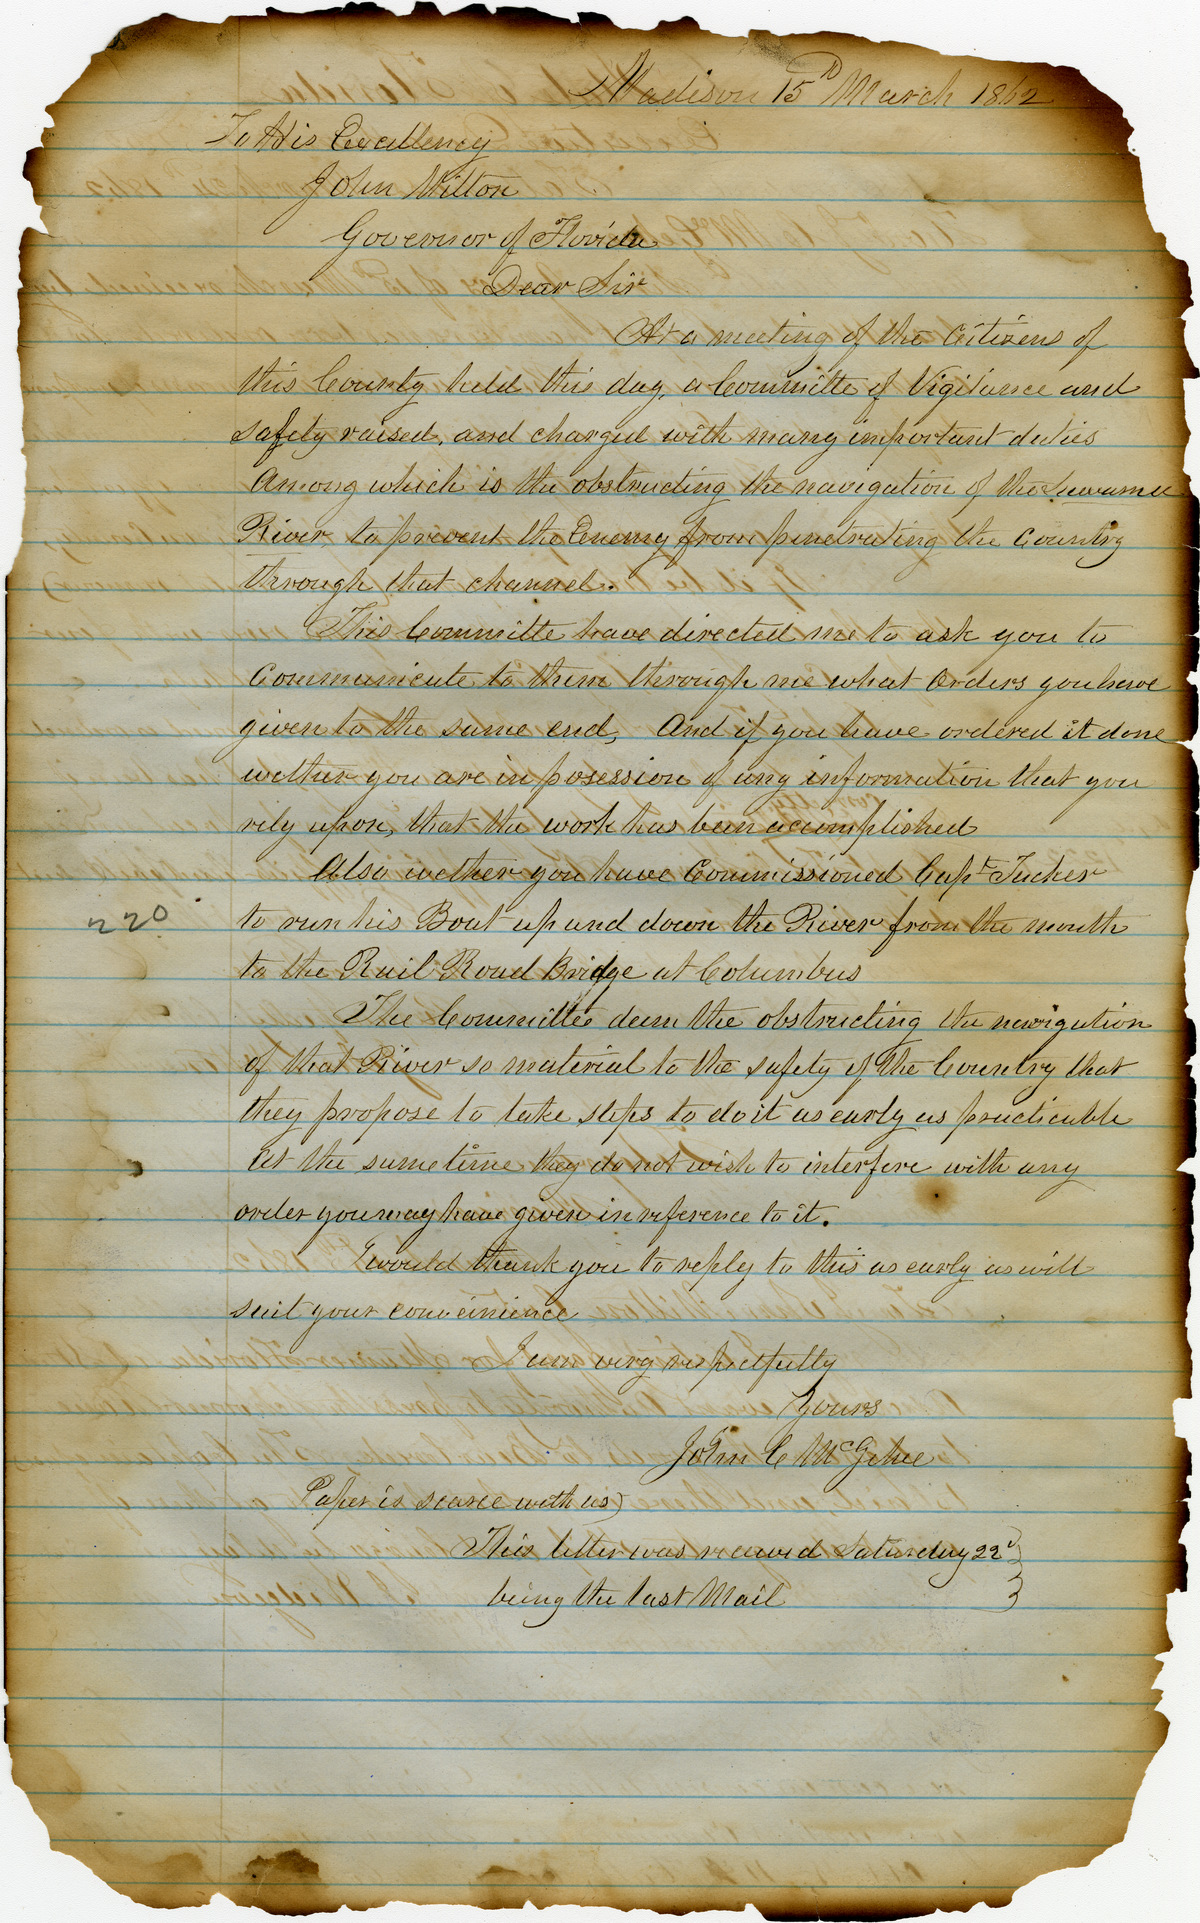 Madison 15th March 1862
To His Excellency
John Milton
Governor of Florida
Dear Sir
At a meeting of the Citizens of
this County held this day, a Committe of Vigilance and
safety raised, and charged with many important duties
Among which is the obstructing the navigation of the Suwannee
River, to prevent the Enemy from penetrating the Country
through that channel.
This Committe have directed me to ask you to
Communicate to them through me what Orders you have
given to the same end, And if you have ordered it done
wether you are in posession of any information that you
rely upon, that the work has been accomplished
Also wether you have Commissioned Capt Tucker
220
to run his Boat up and down the River from the mouth
to the Rail Road Bridge at Columbus
The Committe deem the obstructing the navigation
of that River so material to the safety of the Country that
they propose to take steps to do it as early as practicable
At the same time they do not wish to interfere with any
order you may have given in reference to it.
I would thank you to reply to this as early as will
suit your convenience
I am very respectfully
Yours
John C McGehee
Paper is scarce with us)
This letter was received Saturday 22d
being the last Mail